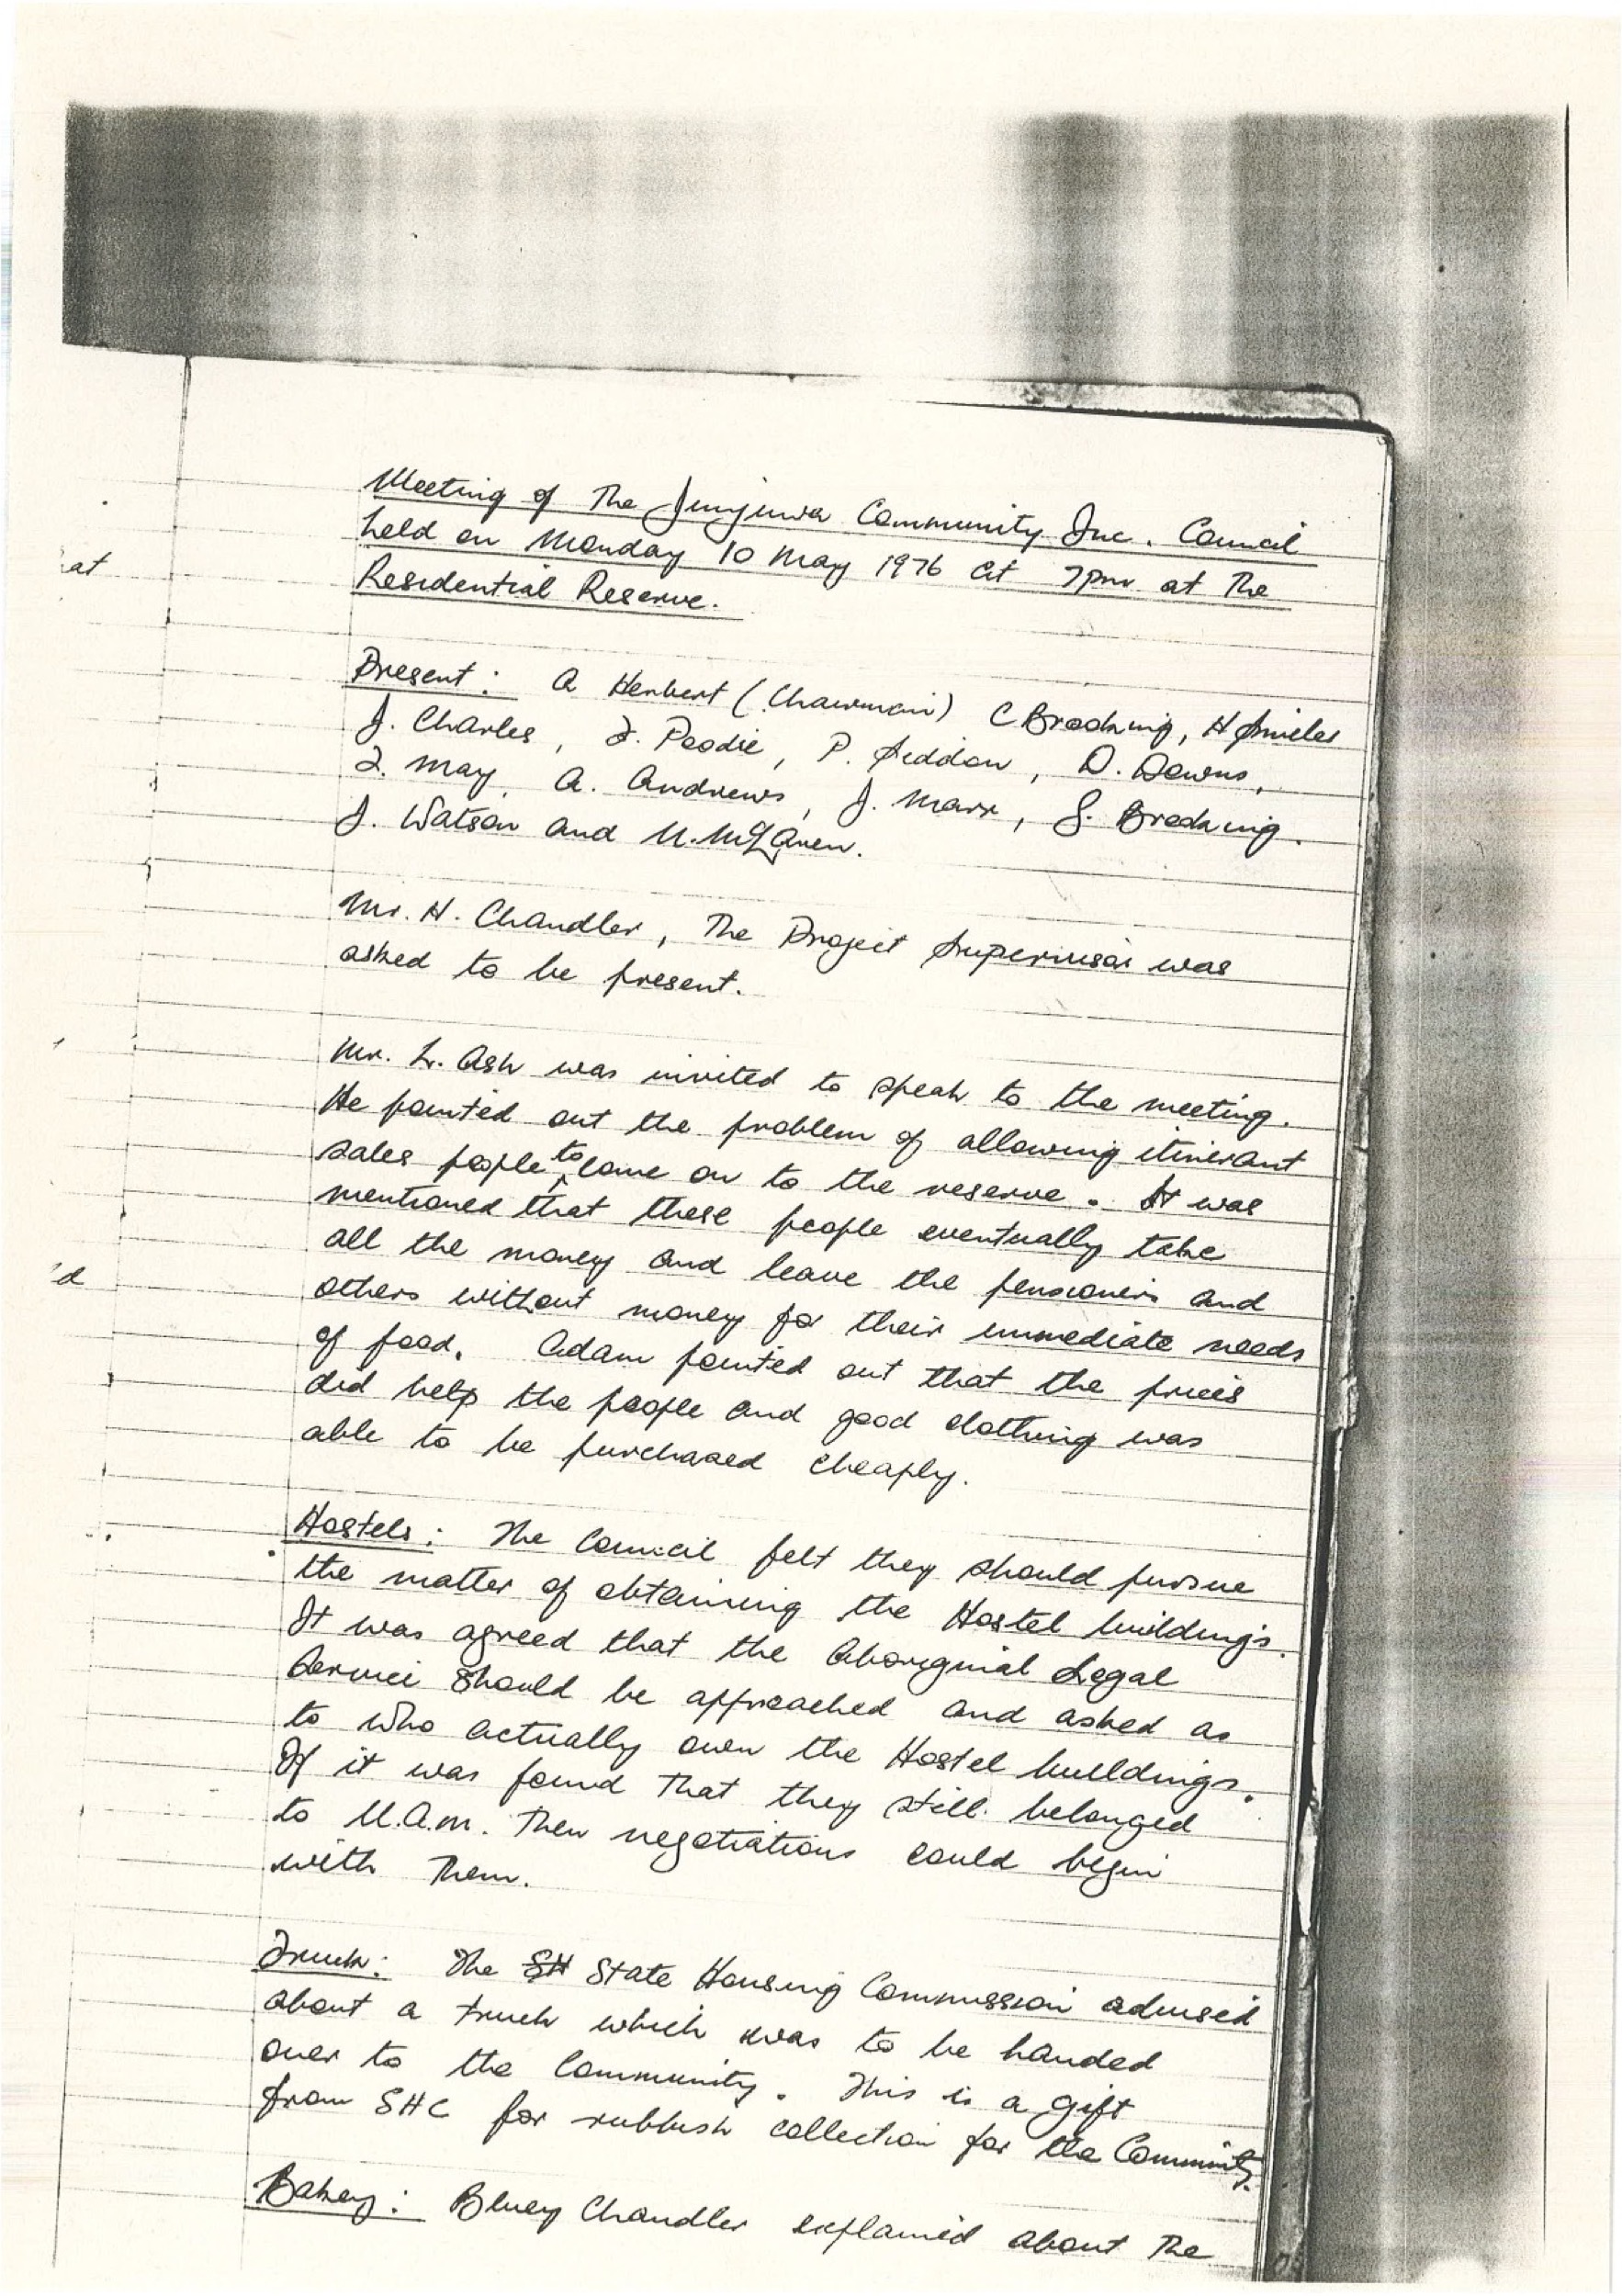 Meeting of The Junjuwa Community Inc. Council
held on Monday 10 May 1976 at 7pm at The
Residential Reserve.
Present: A Herbert (Chairman) C Brooking, H Smiler
J. Charles, I. Peodie, P. Seddon, D. Downs,
I. May, A. Andrews, J. Marr, G. Brooking.
J. Watson and U. McLaren.
Mr. H. Chandler, The Project Supervisor was
asked to be present.
Mr. L. Ash was invited to speak to the meeting.
He pointed out the problem of allowing itinerant
sales people to come on to the reserve. It was
mentioned that these people eventually take
all the money and leave the pensioners and
others without money for their immediate needs
of food. Adam pointed out that the prices
did help the people and good clothing was
able to be purchased cheaply.
Hostels: The Council felt they should pursue
the matter of obtaining the Hostel buildings.
It was agreed that the Aboriginal Legal
Service should be approached and asked as
to who actually own the Hostel buildings.
If it was found that they still belonged
to U.A.M. Then negotiations could begin
with Them.
Truck: The SH State Housing Commission advised
about a truck which was to be handed
over to the Community. This is a gift
from SHC for rubbish collection for the Community.
Bakery: Bluey Chandler explained about The
at
d